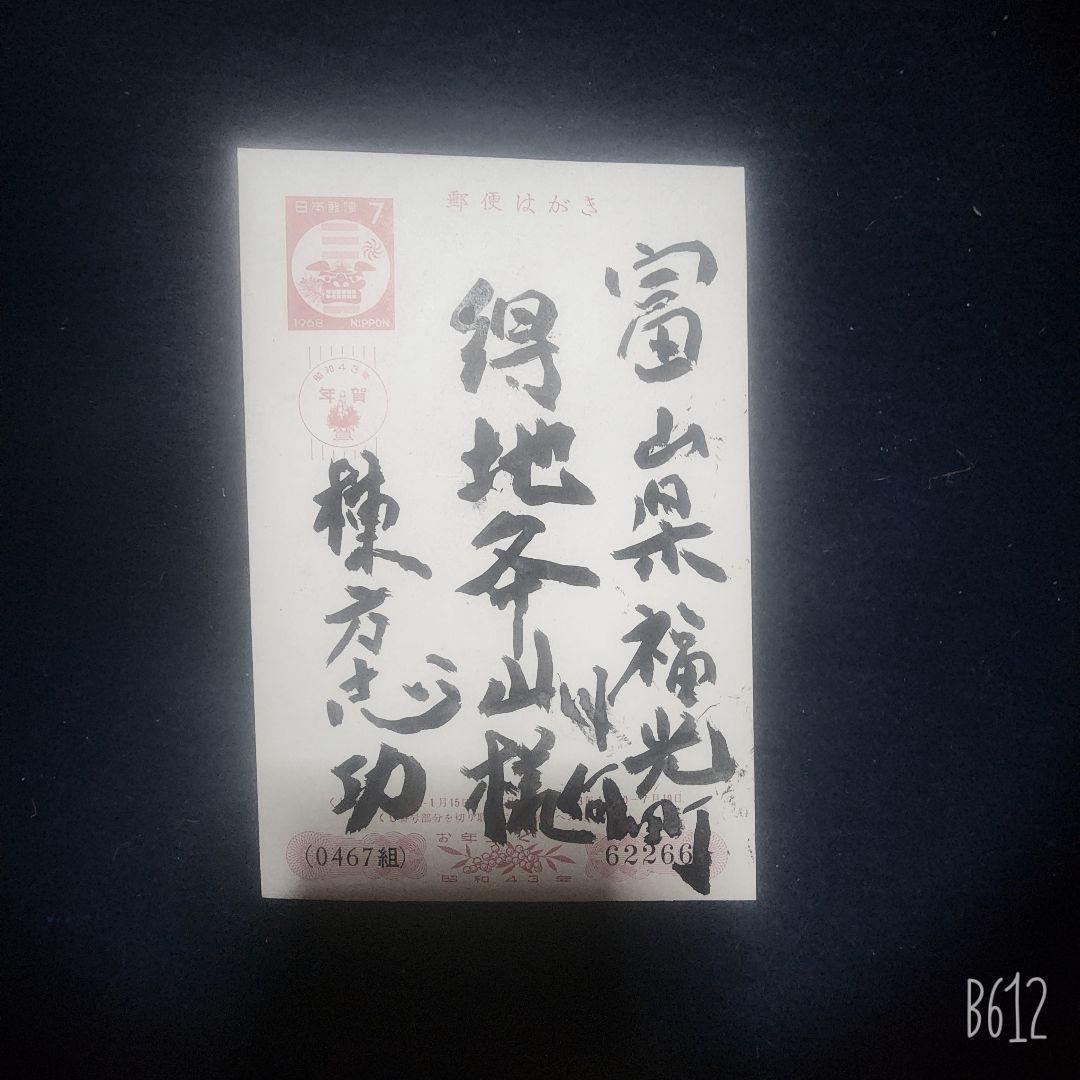 郵便はがき
日本郵便 7
1968 NIPPON
昭和43年
年賀
富山県福光町
得地斧山様
棟方志功
(0467組)
62266
昭和43年
B612